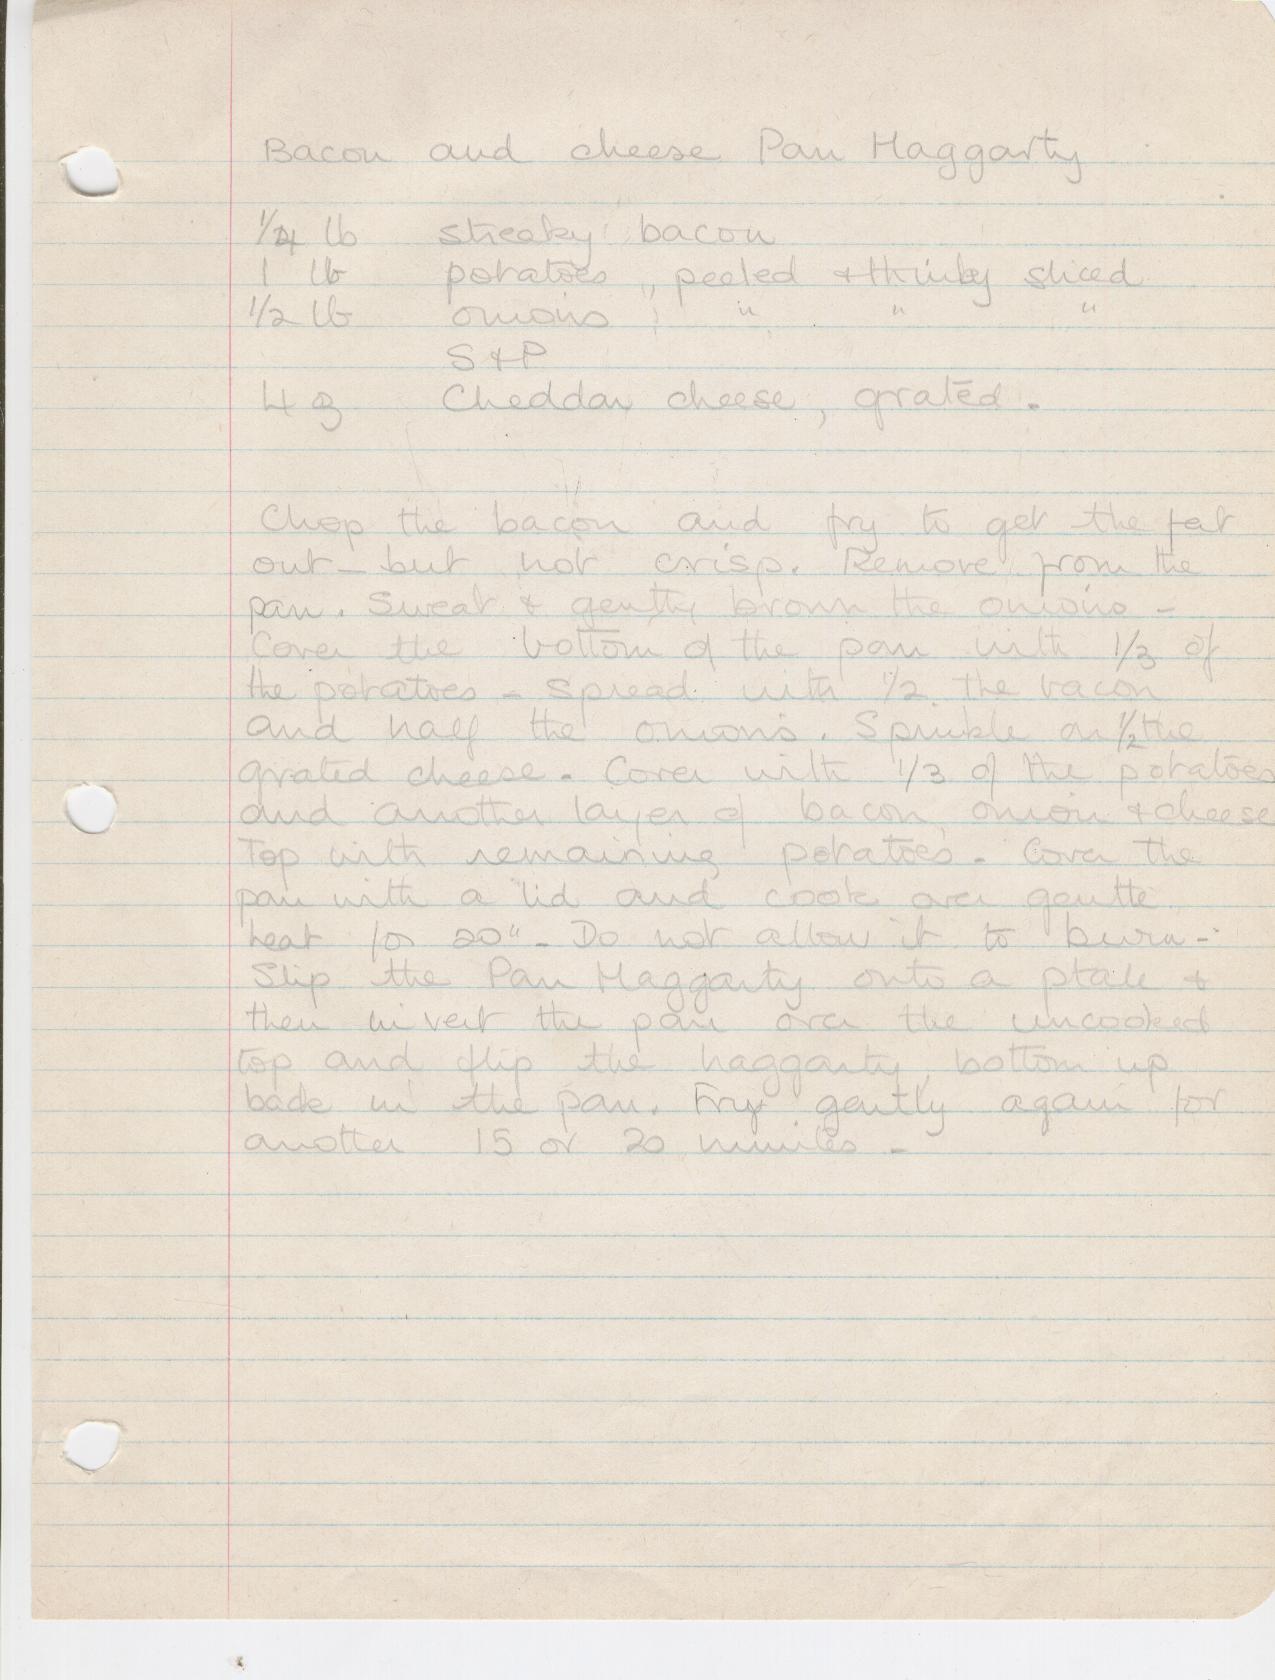 Bacon and cheese Pan Haggarty
1/4 lb streaky bacon
1 lb potatoes, peeled & thinly sliced
1/2 lb onions, " " "
S & P
4 oz Cheddar cheese, grated.
Chop the bacon and fry to get the fat
out - but not crisp. Remove from the
pan. Sweat & gently brown the onions -
Cover the bottom of the pan with 1/3 of
the potatoes - spread with 1/2 the bacon
and half the onions. Sprinkle on 1/2 the
grated cheese. Cover with 1/3 of the potatoes
and another layer of bacon, onion & cheese
Top with remaining potatoes. Cover the
pan with a lid and cook over gentle
heat for 20" - Do not allow it to burn -
Slip the Pan Haggarty onto a plate &
then invert the pan over the uncooked
top and flip the haggarty, bottom up
back in the pan. Fry gently again for
another 15 or 20 minutes -